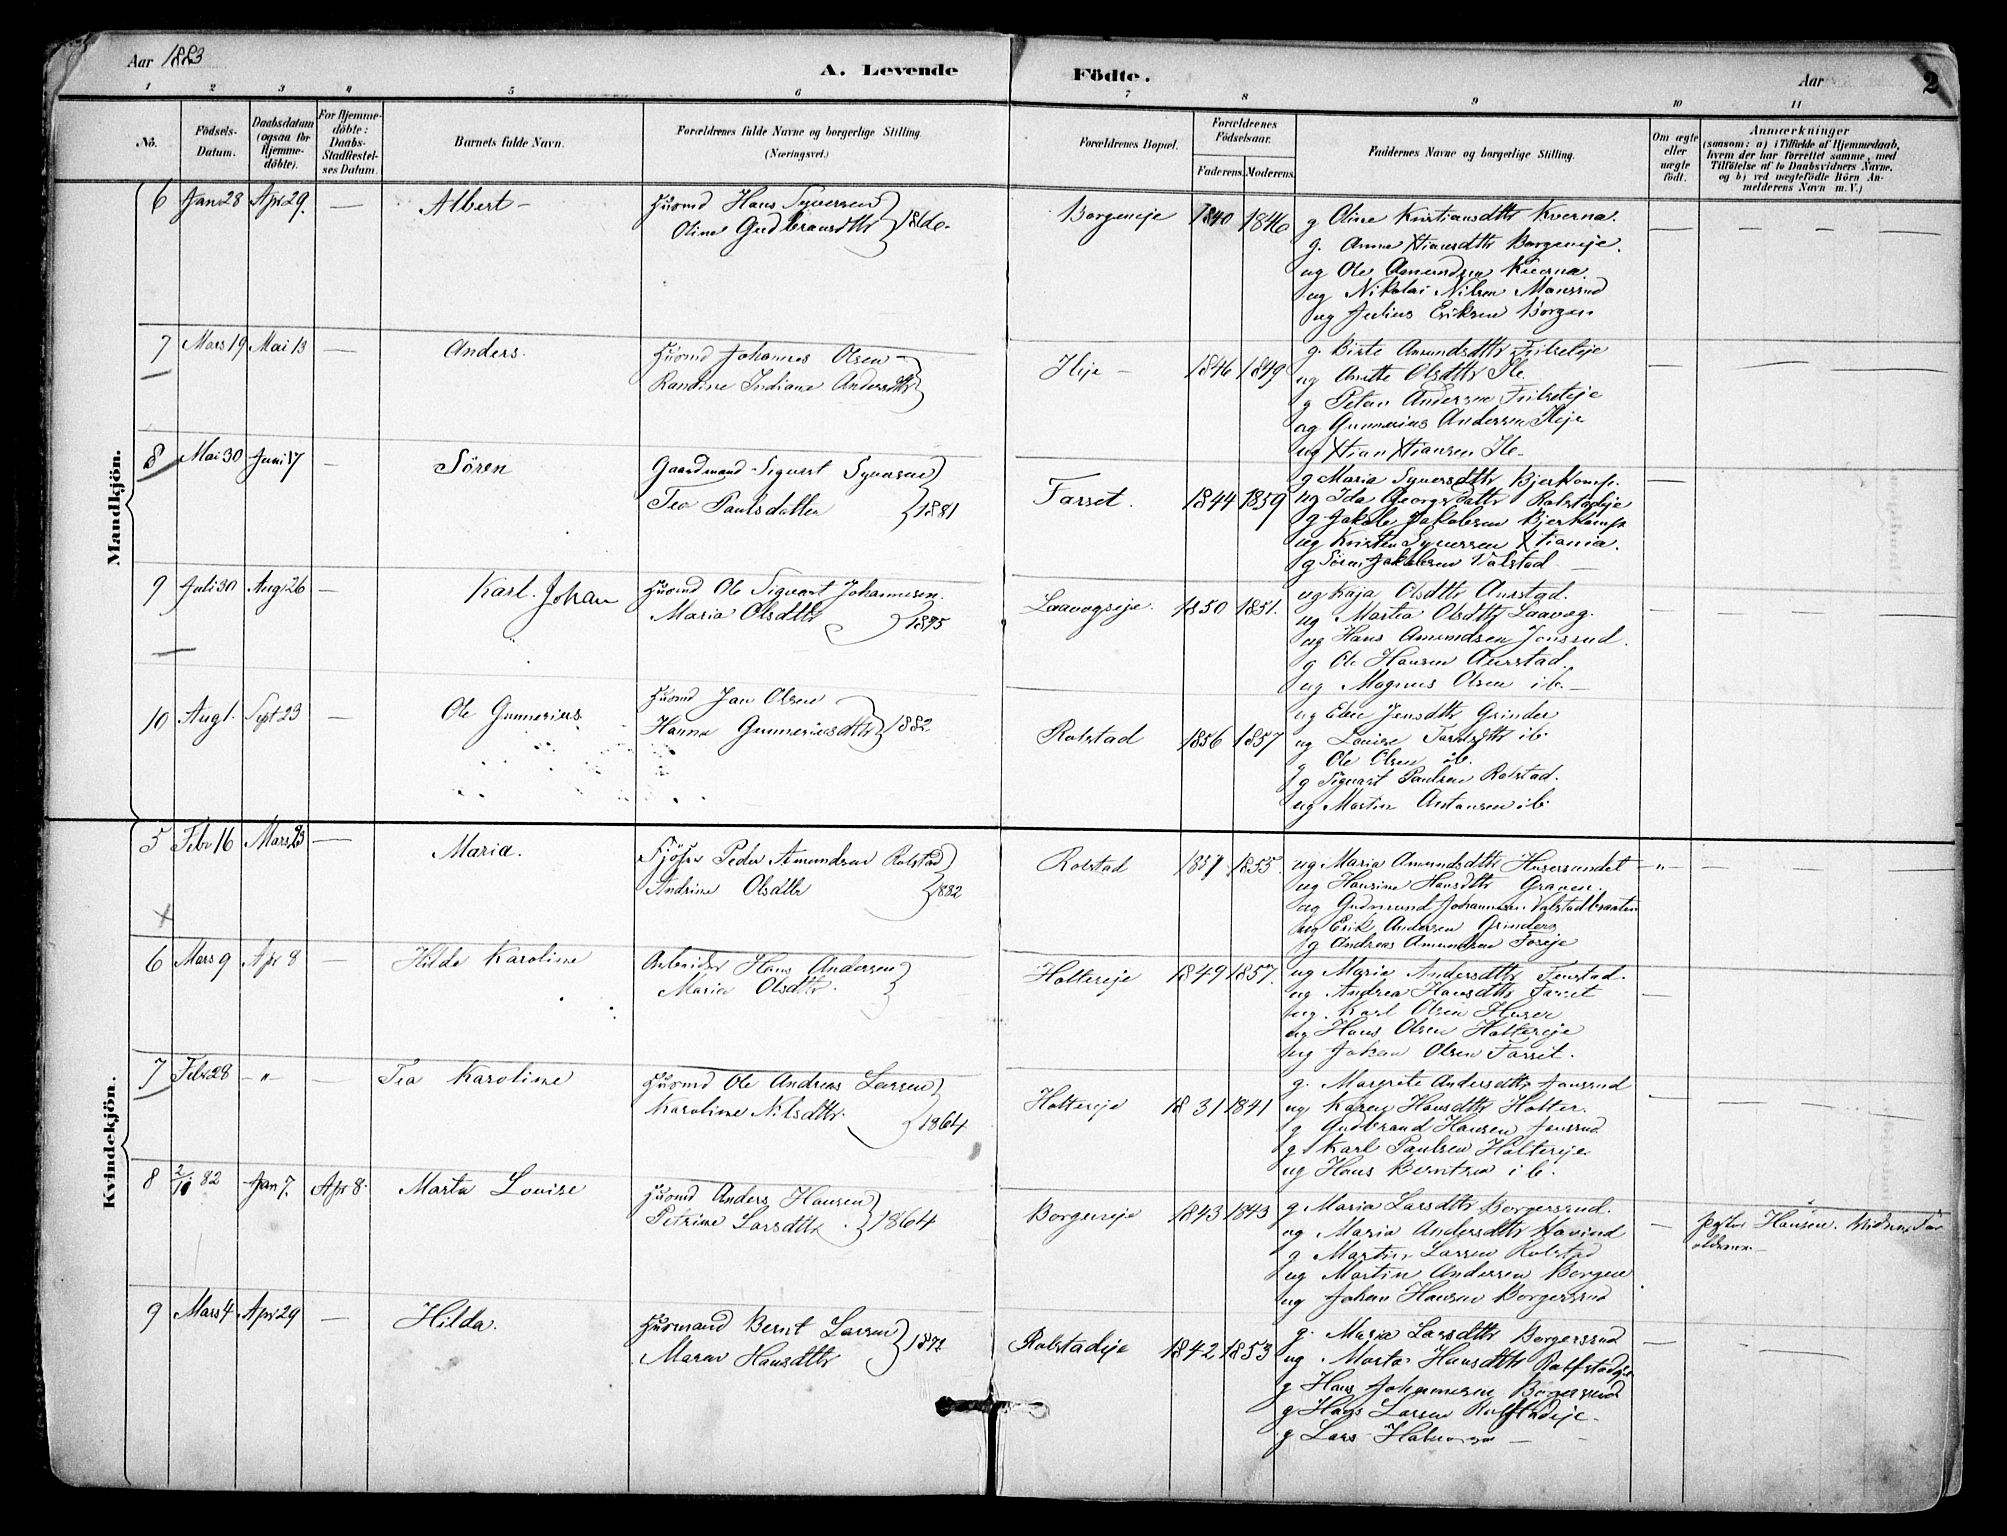 Aar 1883
A. Levende Födte.
Aar
2
1 2 3 4 5 6 7 8 9 10 11
No.
Födsels-Datum.
Daabsdatum (ogsaa for Hjemme-döbte).
For Hjemme-döbte: Daabs-Stadfæstel-ses Datum.
Barnets fulde Navn.
Forældrenes fulde Navne og borgerlige Stilling. (Næringsvei.)
Forældrenes Bopæl.
Forældrenes Födselsaar.
Faderens. Moderens.
Faddernes Navne og borgerlige Stilling.
Om ægte eller uægte födt.
Anmærkninger
(saasom: a) i Tilfælde af Hjemmedaab,
hvem der har forrettet samme, med
Tilföielse af to Daabsvidners Navne.
og b) ved uægtefödte Börn An-
melderens Navn m. V.)
Mandkjön.
6 Jan 28 Apr 29. — Albert —
Husmd Hans Syversen
Oline Gudbransdtr
Borgeneje 1840 1846
g Oline Kristiansdtr Kverna.
g. Anna Xtiansdtr Borgeneje.
ug Ole Amundsen Kverna
ug Nikolai Nilsen Mausrud
ug Julius Eriksen Borgen
7 Mars 19 Mai 13 — Anders.
Husmd Johannes Olsen
Randine Indiane Andersdtr
Ileje — 1846 1849
g. Birte Amundsdtr
ug Anette Olsdtr Ile
g Petan Andersen
ug Gunnerius Andersen Ileje
ug Xtian Xtiansen Ile
8 Mai 30 Juni 17 — Sören
Gaardmand Sigvart Syversen
Tea Paulsdatter 1881
Farset. 1844 1859
g Maria Syversdtr Bjerkamp.
ug Ida Georgsdatter Rolstadeje
g Jakob Jakobsen Bjerkamp
ug Kristen Syversen Xtiania.
g Sören Jakobsen Valstad
9 Juli 30 Aug 26 — Karl Johan
Husmd Ole Sigvart Johannesen.
Maria Olsdtr 1875
Laavogseje. 1850 1851.
ug Kaja Olsdtr Aurstad.
ug Martea Olsdtr Laavog.
ug Hans Amundsen Jonsrud.
g Ole Hansen Aurstad.
ug Magnus Olsen ib.
10 Aug 1. Sept 23 — Ole Gunnerius
Husmd Jan Olsen
Hanna Gunneriusdtr 1882
Rolstad 1856 1857
ug Ebee Jensdtr Grinder
ug Louise ib.
g Ole Olsen ib.
g Sigvart Paulsen Rolstad.
ug Martin Antonsen ib.
Kvindekjön.
5 Febr 16 Mars — Maria.
Peder Amundsen Rolstad
Andrine Olsdtr 1882
Rolstad 1857 1855.
ug Maria Amundsdtr
ug Hansine Hansdtr Graven.
ug Gudmund Johannesen Valstadbraaten
ug Erik Andersen Grinder
g Andreas Amundsen
6 Mars 9 Apr 8 — Hilda Karoline
Arbeider Hans Andersen
Maria Olsdtr.
Holtereje 1849 1857.
ug Maria Andersdtr Fenstad.
ug Andrea Hansdtr Farset
ug. Karl Olsen Huser
ug Hans Olsen Holtereje
ug Johan Olsen Farset.
7 Febr 28 „ — Tea Karoline
Husmd Ole Andreas Larsen
Karoline Nilsdtr. 1864
Holtereje 1831 1841
g. Margrete Andersdtr Jonsrud
ug Karen Hansdtr Holter.
g Gudbrand Hansen Jonsrud
g Karl Paulsen Holtereje
ug Hans Berntsen ib.
8 2/10 82 Jan 7. Apr 8. Marta Louise
Husmd Anders Hansen
Petrine Larsdtr. 1864
Borgeneje 1843 1843
g Maria Larsdtr Borgersrud.
ug Maria Andersdtr Havind
g Martin Larsen Rolstad
ug Martin Andersen Borgen
ug Johan Hansen Borgersrud
Hansen.
9 Mars 4 Apr 29 — Hilda.
Husmand Bernt Larsen
Maren Hansdtr 1877
Rolstadeje 1842 1853
g. Maria Larsdtr Borgersrud
ug Marta Hansdtr Rolfstadeje
g Hans Johannesen Borgersrud
g Hans Larsen Rolfstadeje
g Lars